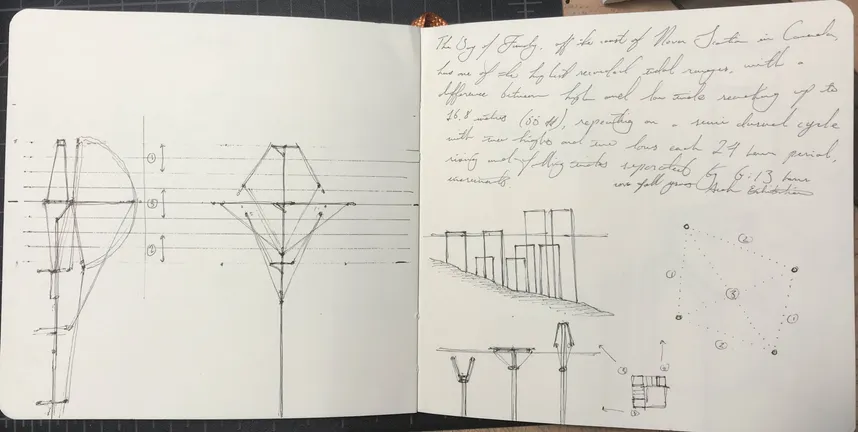 The Bay of Fundy, off the coast of Nova Scotia in Canada,
has one of the highest recorded tidal ranges, with a
difference between high and low tide reaching up to
16.8 metres (55 ft), repeating on a semi diurnal cycle
with two highs and two lows each 24 hour period,
rising and falling separated by 6:13 hour
increments.
①
②
③
①
②
②
①
③